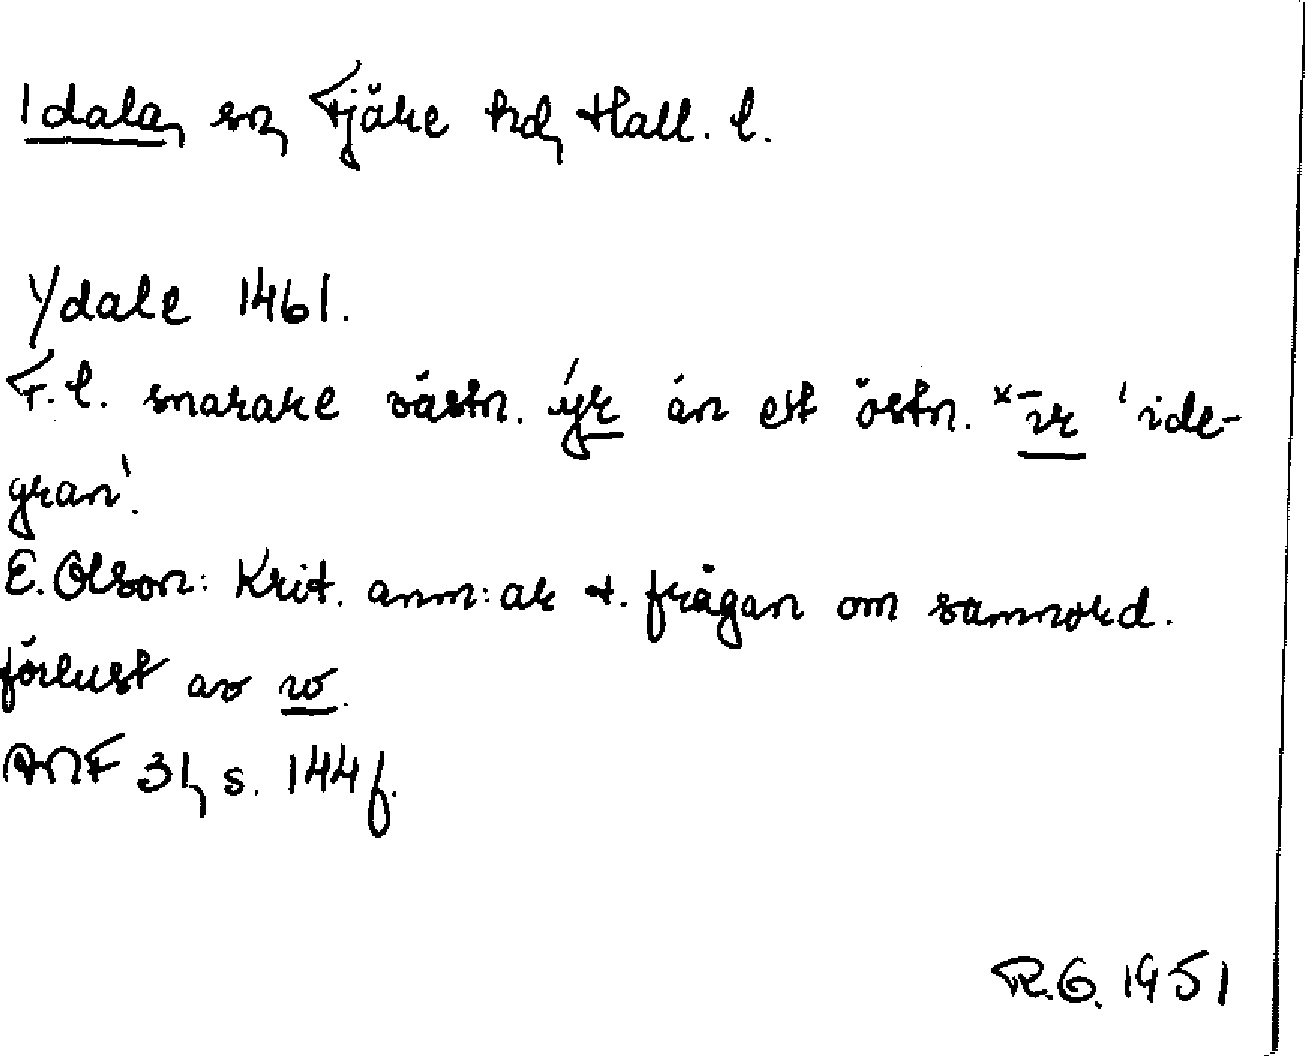 Idala, sn, Fjäre hd, Hall. l.
Ydale 1461.
F.l. snarare västn. ýr än ett östn. *īr 'ide-
gran'.
E. Olson: Krit. anm:ar t. frågan om samnord.
förlust av w.
ANF 31, s. 144 f.
R.G. 1951